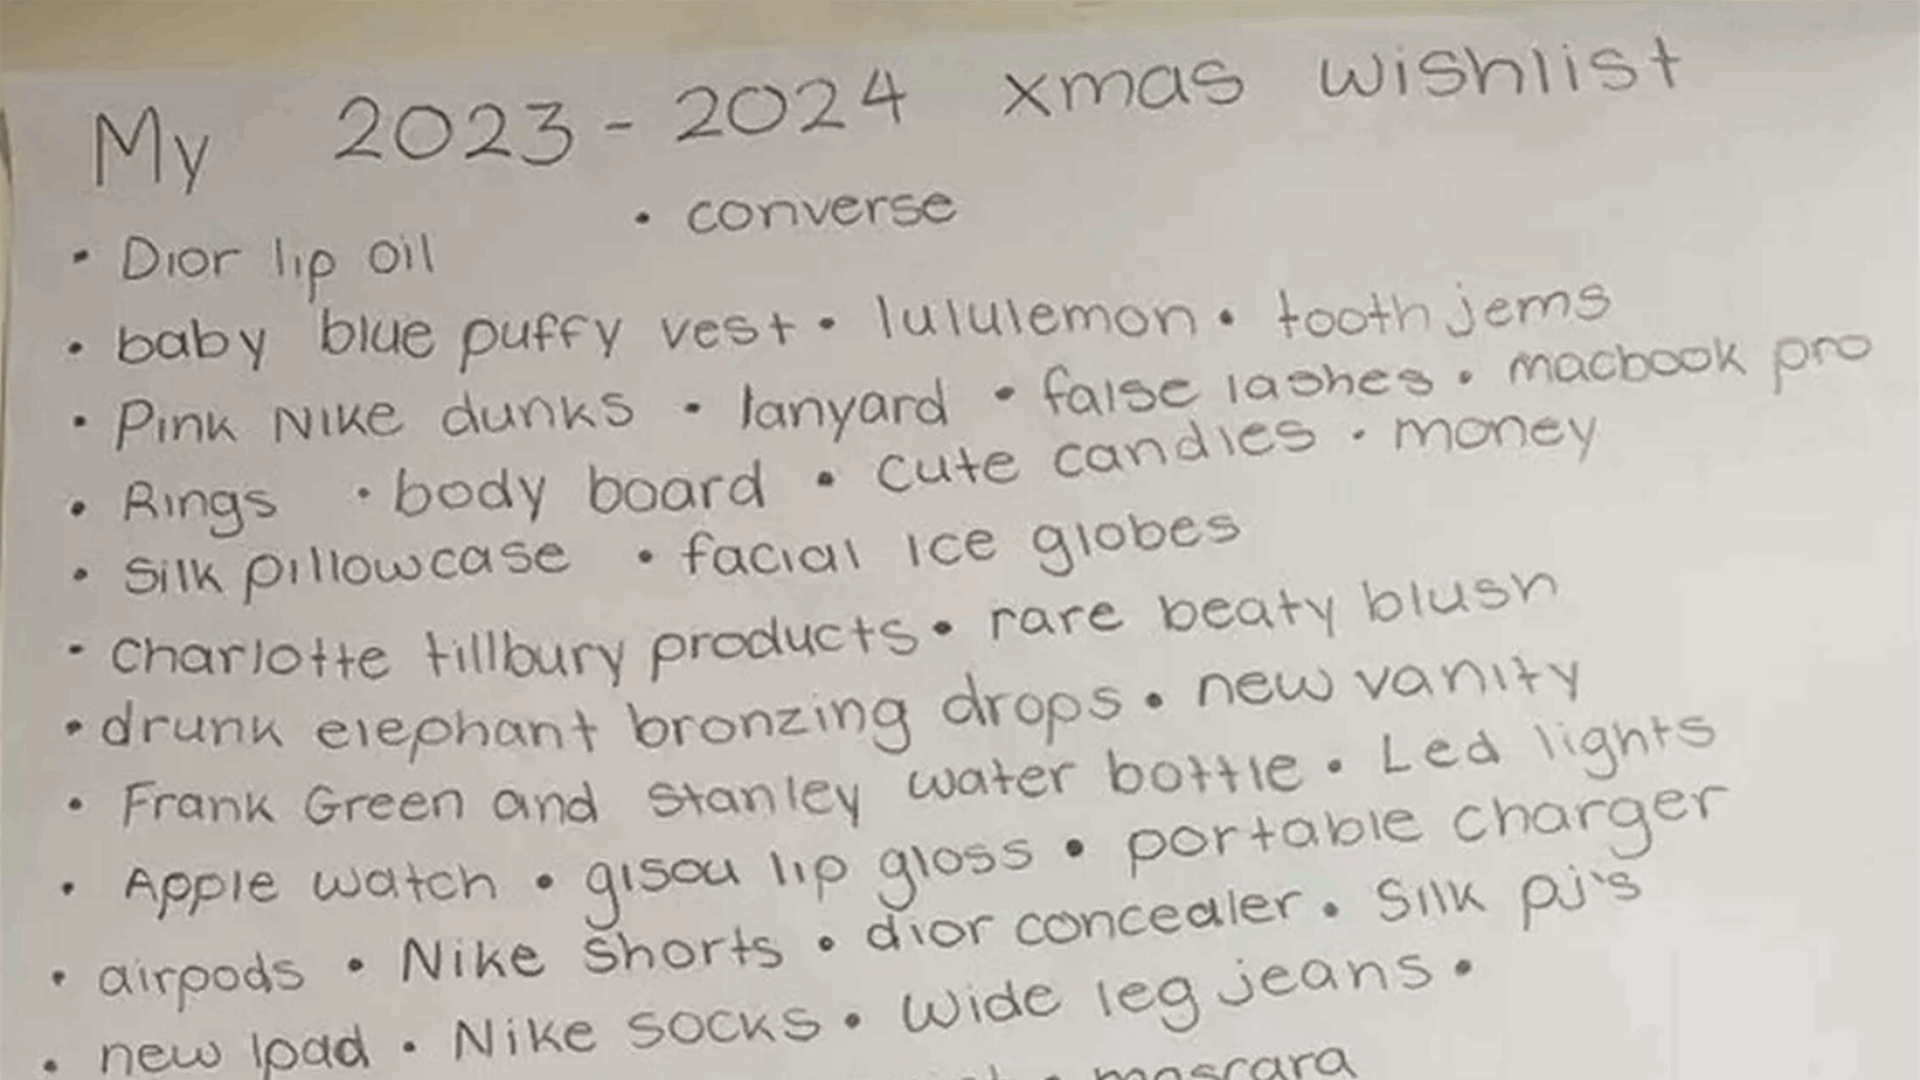 My 2023-2024 xmas wishlist
• converse
• Dior lip oil
• baby blue puffy vest • lululemon • tooth jems
• Pink Nike dunks • lanyard • false lashes • macbook pro
• Rings • body board • cute candles • money
• Silk pillowcase • facial ice globes
• charlotte tillbury products • rare beaty blush
• drunk elephant bronzing drops • new vanity
• Frank Green and Stanley water bottle • Led lights
• Apple watch • gisou lip gloss • portable charger
• airpods • Nike shorts • dior concealer • Silk pj's
• new ipad • Nike socks • wide leg jeans •
• mascara